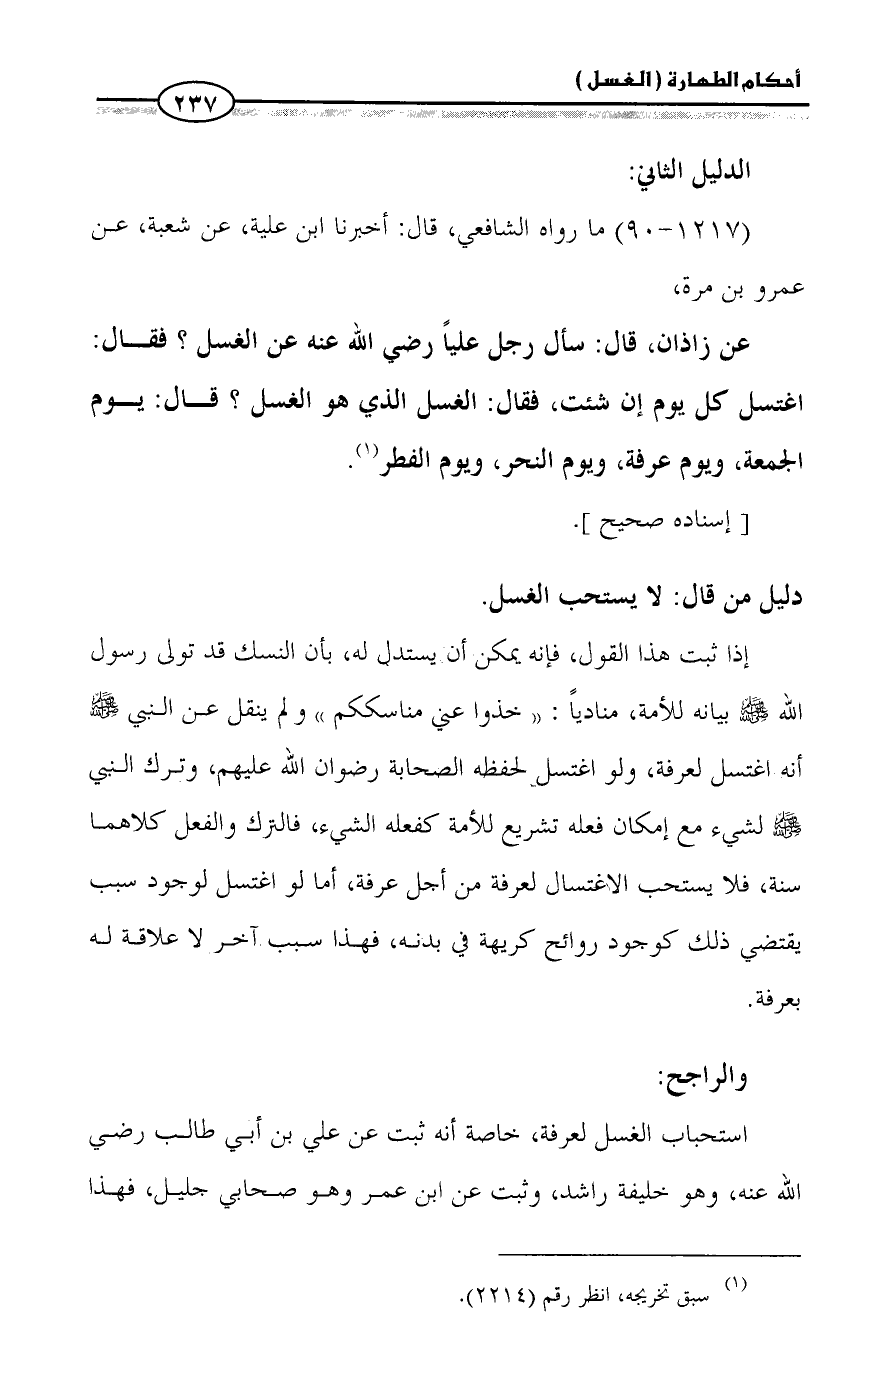 أحكام الطهارة (الغسل)
٢٣٧
الدليل الثاني:
(١٢١٧-٩٠) ما رواه الشافعي، قال: أخبرنا ابن علية، عن شعبة، عن
عمرو بن مرة،
عن زاذان، قال: سأل رجل علياً رضي الله عنه عن الغسل ؟ فقال:
اغتسل كل يوم إن شئت، فقال: الغسل الذي هو الغسل ؟ قال: يوم
الجمعة، ويوم عرفة، ويوم النحر، ويوم الفطر(١).
[ إسناده صحيح ].
دليل من قال: لا يستحب الغسل.
إذا ثبت هذا القول، فإنه يمكن أن يستدل له، بأن النسك قد تولى رسول
الله ﷺ بيانه للأمة، منادياً : (( خذوا عني مناسككم )) ولم ينقل عن النبي ﷺ
أنه اغتسل لعرفة، ولو اغتسل لحفظه الصحابة رضوان الله عليهم، وترك النبي
ﷺ لشيء مع إمكان فعله تشريع للأمة كفعله الشيء، فالترك والفعل كلاهما
سنة، فلا يستحب الاغتسال لعرفة من أجل عرفة، أما لو اغتسل لوجود سبب
يقتضي ذلك كوجود روائح كريهة في بدنه، فهذا سبب آخر لا علاقة له
بعرفة.
والراجح:
استحباب الغسل لعرفة، خاصة أنه ثبت عن علي بن أبي طالب رضي
الله عنه، وهو خليفة راشد، وثبت عن ابن عمر وهو صحابي جليل، فهذا
(١) سبق تخريجه، انظر رقم (٢٢١٤).